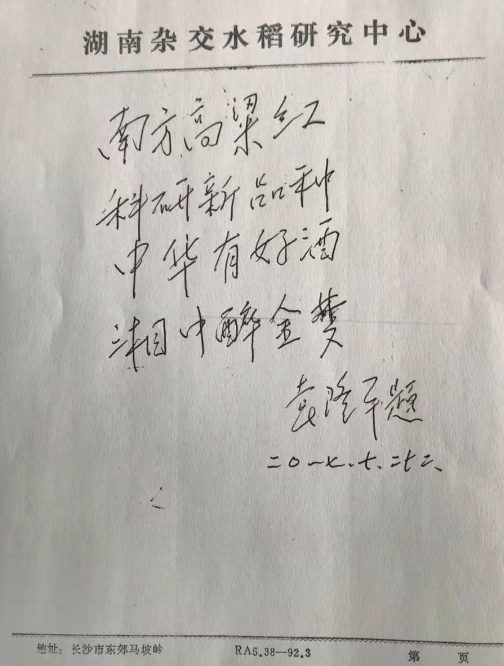 湖南杂交水稻研究中心
南方高粱红
科研新品种
中华有好酒
湘中醉金樊
袁隆平题
二〇一七、七、二十二、
地址：长沙市东郊马坡岭 RA5.38—92.3 第 页